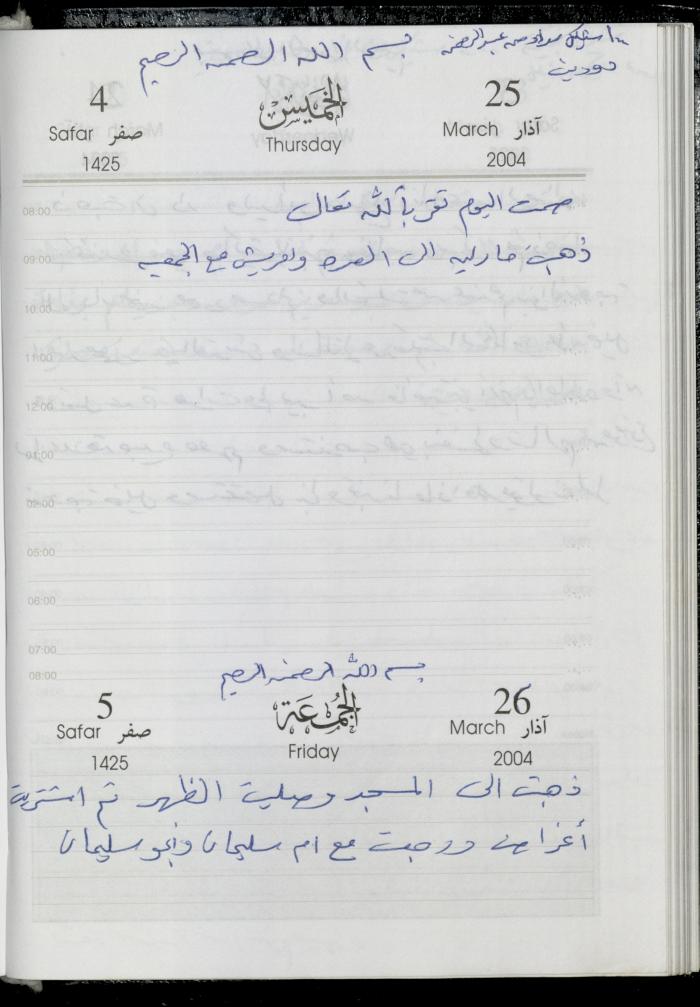 بسم الله الرحمن الرحيم
4 الخميس 25
Safar صفر Thursday March آذار
1425 2004
08:00 صمت اليوم تقربا لله تعالى
09:00 ذهبت ماريه الى مع الجمعيه
10:00
11:00
12:00
01:00
02:00
05:00
06:00
07:00
08:00
بسم الله الرحمن الرحيم
5 الجمعة 26
Safar صفر Friday March آذار
1425 2004
ذهبت الى المسجد وصليت الظهر ثم اشتريت
أغراض ورجعت مع ام سليمان وابو سليمان